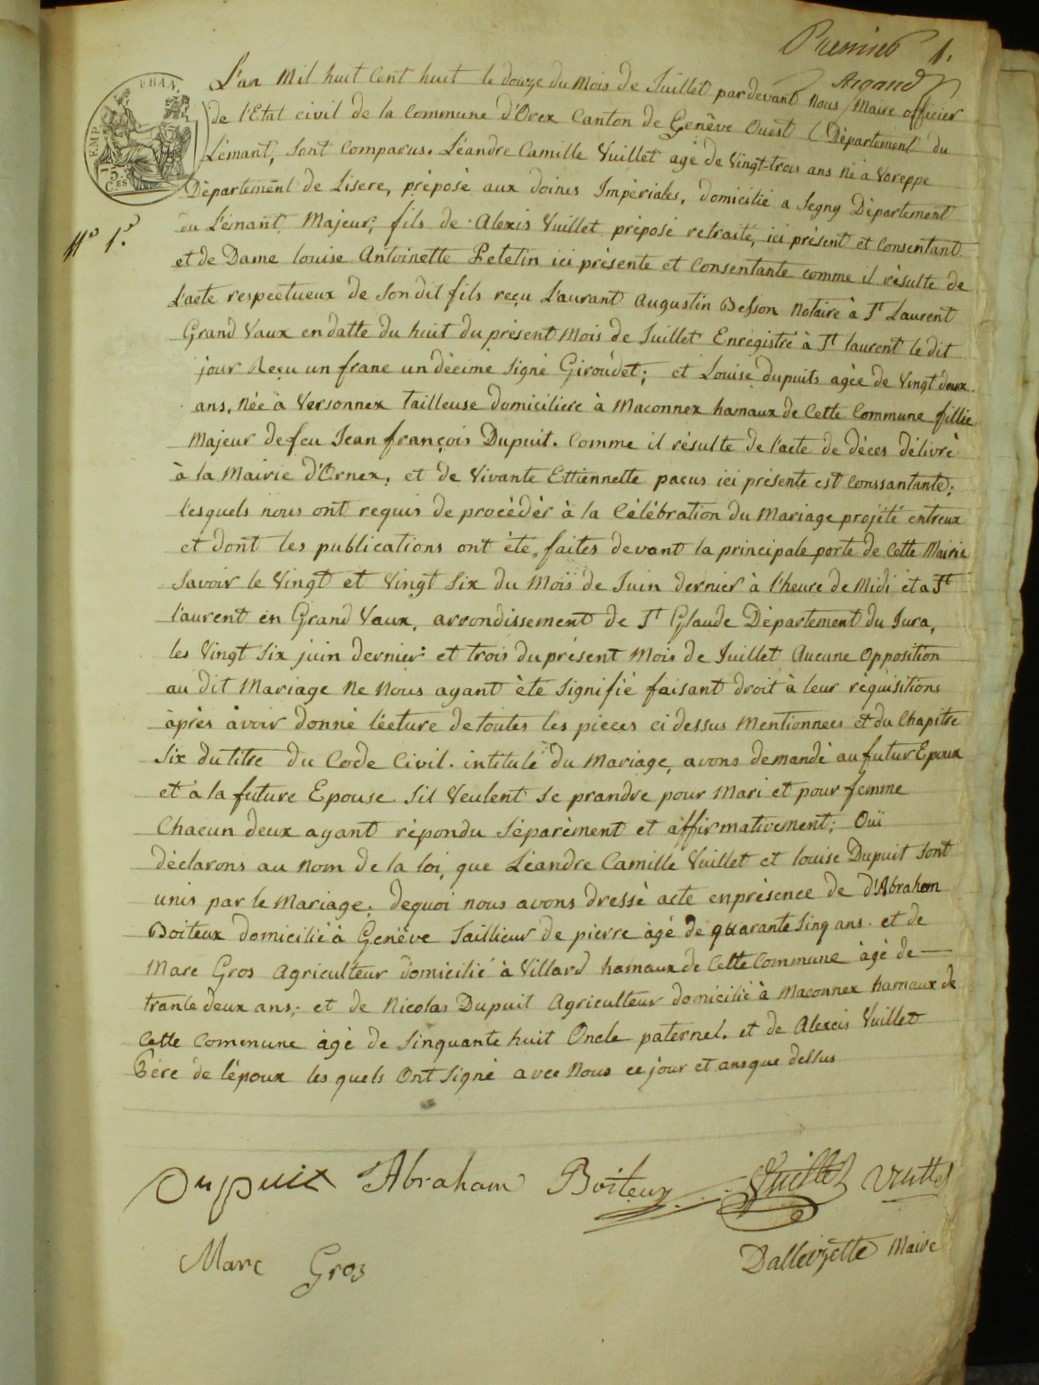 Premier 1.
Argand
EMP. FRAN.
75
CES
L'an Mil huit Cent huit le douze du Mois de Juillet pardevant Nous Maire officier
de l'Etat civil de la Commune d'Orex Canton de Genève Ouest Département du
Lémant, sont Comparus. Léandre Camille Vuillet agé de Vingt-trois ans Né a Voreppe
Département de Lisere, préposé aux doines Impériales, domicilié a Segny Département
du Lémant, Majeur, fils de Alexis Vuillet préposé retraité, ici présent et Consentant
N° 1er
et de Dame louise Antoinette Petetin ici présente et Consentante comme il résulte de
l'acte respectueux de Son dit fils reçu Laurant Augustin Besson Notaire à St Laurent
Grand Vaux en datte du huit du présent Mois de Juillet Enregistré à St laurent le dit
jour Reçu un franc un décime Signé Giroudet; et Louise dupuits agée de Vingt deux
ans, Née à Versonnex tailleuse domiciliere à Maconnex hamaux de Cette Commune fillie
Majeur de feu Jean françois Dupuit. Comme il résulte de l'acte de déces délivré
à la Mairie d'Ornex, et de Vivante Ettiennette pacus ici présente est Conssantante;
lesquels nous ont requis de procédér à la Célébration du Mariage projeté entreux
et dont les publications ont été faites devant la principale porte de Cette Mairie
Savoir le Vingt et Vingt Six du Mois de Juin dernier à l'heure de Midi et a St
laurent en Grand Vaux, arrondissement de St Glaude Département du Jura,
les Vingt Six juin dernier et trois du présent Mois de Juillet Aucune Opposition
au dit Mariage Ne Nous ayant été Signifié faisant droit à leur réquisitions
après avoir donné lécture de toutes les pieces ci dessus Mentionnees et du Chapitre
Six du titre du Code Civil. intitulé du Mariage, avons demandé au futur Epoux
et à la future Epouse Sil Veulent Se prandre pour Mari et pour femme
Chacun deux ayant répondu Séparément et affirmativement; Oui
déclarons au Nom de la loi, que Léandre Camille Vuillet et louise Dupuit Sont
unis par le Mariage; dequoi nous avons dressé acte en présence de d'Abraham
Boiteux domicilié à Genêve Taillieur de pierre âgé de quarante Sinq ans. et de
Marc Gros Agriculteur domicilié à Villard hamaux de Cette Commune âgé de
trante deux ans; et de Nicolas Dupuit Agriculteur domicilié à Maconnex hamaux de
Cette Commune âgé de Sinquante huit Oncle paternel. et de Alexcis Vuillet
Pére de l'époux les quels Ont Signé avec Nous ce jour et ans que dessus
Dupuit Abraham Boiteux Vuillet Vuillet
Marc Gros Dalleizette Maire